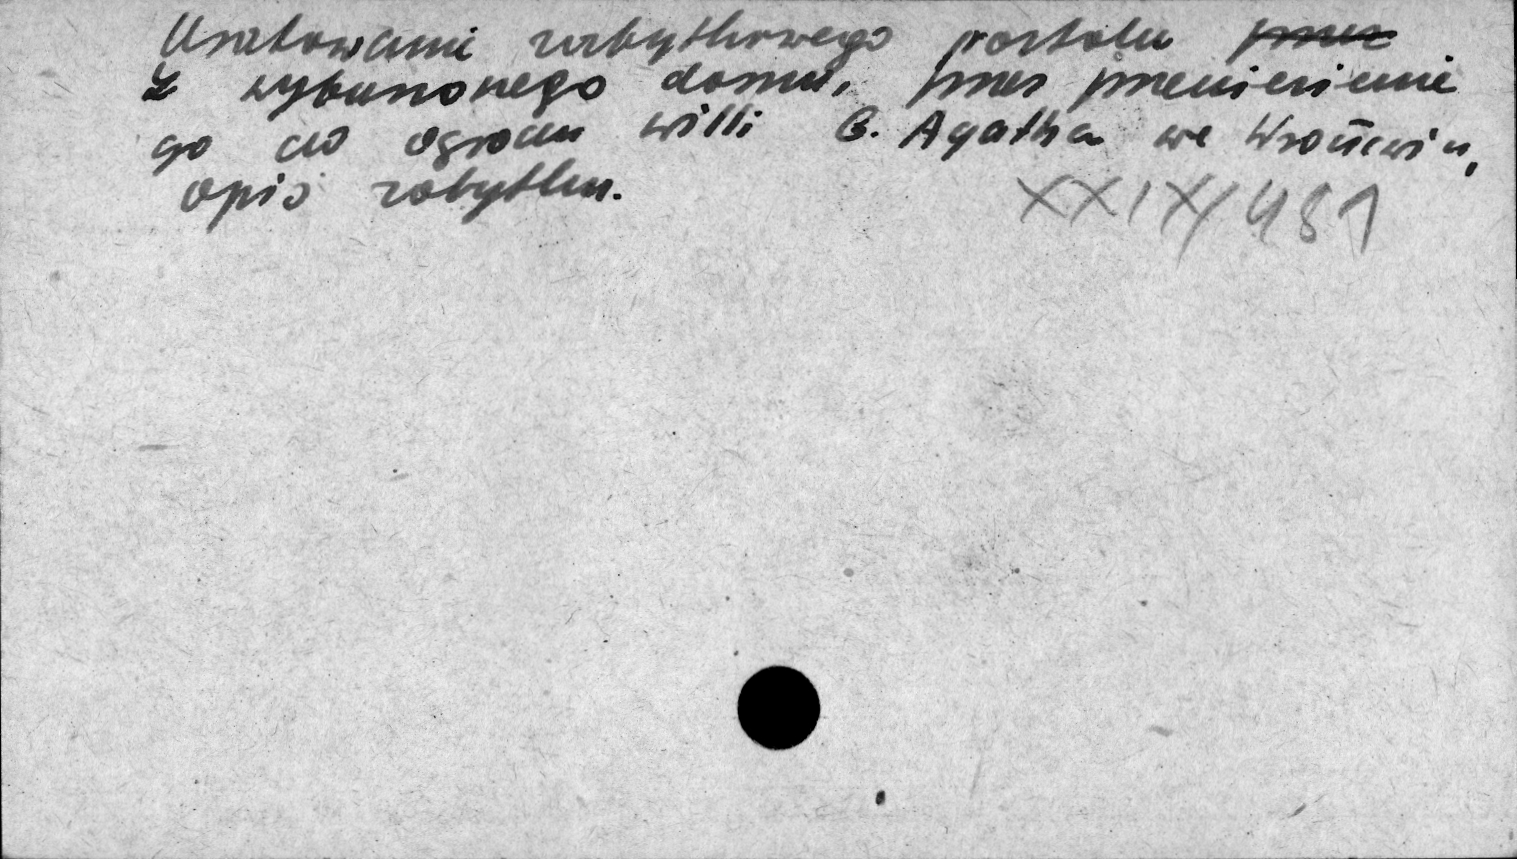 Uratowanie zabytkowego portalu przez
z wyburzonego domu, przez przeniesienie
go do ogrodu willi B. Agatha we Wrocławiu,
opis zabytku.
XXIX/481